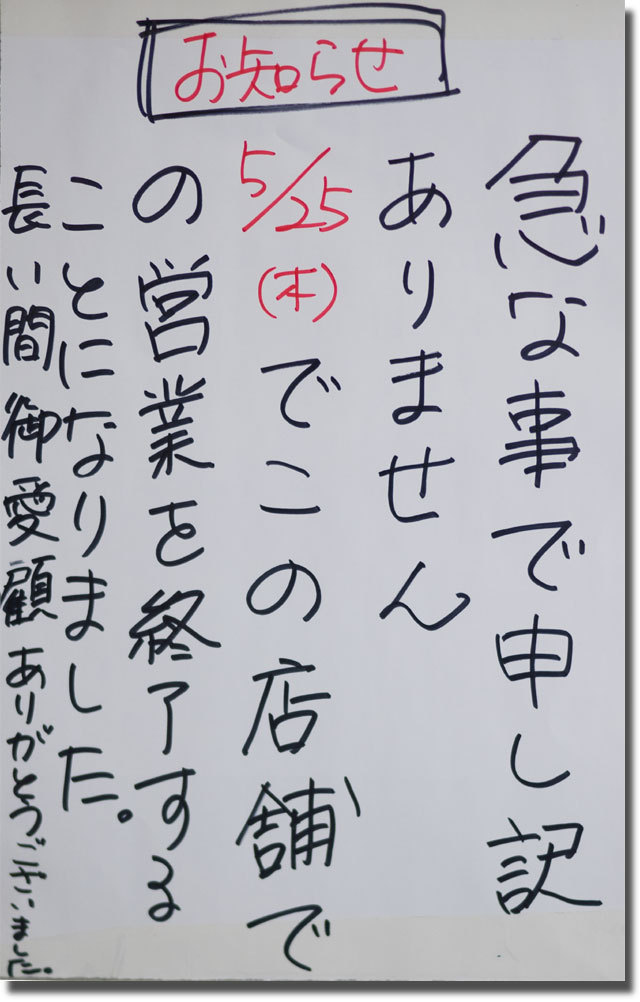 お知らせ
急な事で申し訳
ありません
5/25(木)でこの店舗で
の営業を終了する
ことになりました。
長い間御愛顧ありがとうございました。